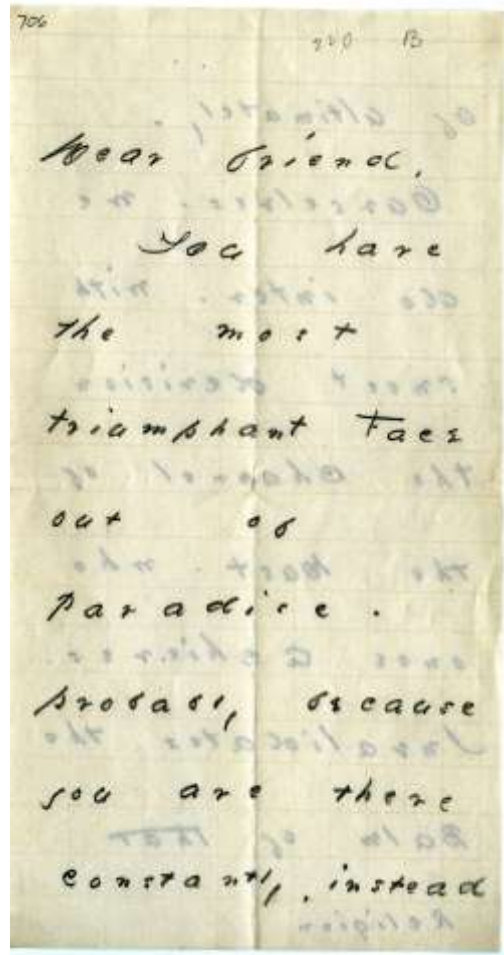 706
220 B
Dear friend.
You have
the most
triumphant Face
out of
Paradise.
probably because
you are there
constantly, instead